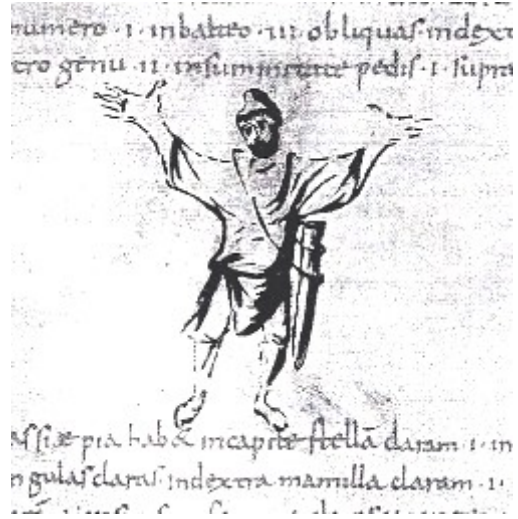 numero · i · inbalteo · iii · obliquas · indext
tro genu · ii · insummitate pedis · i · supra
assiæ pia hab& incapite stellā claram · i · in
ngulas claras · indextra mamilla claram · i ·